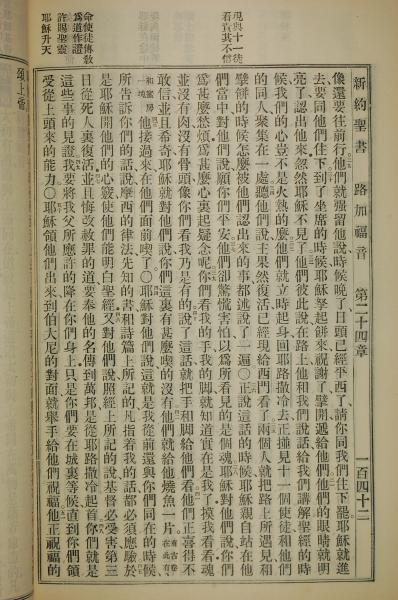 新約聖書 路加福音 第二十四章 一百四十二
現與十一徒
看責其不信
像還要往前行他們就強留他說時候晚了日頭已經平西了請你同我們住下罷耶穌就進
去要同他們住下到了坐席的時候耶穌拏起餅來祝謝了擘開遞給他們他們的眼睛就明
亮了認出他來忽然耶穌不見了他們彼此說在路上他和我們說話給我們講解聖經的時
候我們的心豈不是火熱的麼他們就立時起身回耶路撒冷去正撞見十一個使徒和他們
的同人聚集在一處聽他們說主果然復活已經現給西門看了兩個人就把路上所遇見和
擘餅的時候怎麼被他們認出來的事都述說了一遍○正說話的時候耶穌親自站在他
們當中對他們說願你們平安他們卻驚慌害怕以爲所看見的是個魂耶穌對他們說你們
爲甚麼愁煩爲甚麼心裏起疑念呢你們看我的手我的脚就知道實在是我了摸我看看魂
並沒有肉沒有骨頭像你們看我乃是有的說了這話就把手和脚給他們看他們正喜得不
敢信並且希奇耶穌就對他們說你們這裏有甚麼喫的沒有他們就給他燒魚一片有古卷在此有
和蜜房一塊他接過來在他們面前喫了○耶穌對他們說這就是我從前還與你們同在的時候
命使徒傳教
爲道作證
許賜聖靈
耶穌升天
所告訴你們的話說摩西的律法先知的書和詩篇上所記的凡指着我的話都必須應驗於
是耶穌開他們的心竅使他們能明白聖經又對他們說照經上所記的說基督必受害第三
日從死人裏復活並且悔改赦罪的道要奉他的名傳到萬邦是從耶路撒冷起首你們就是
這些事的見證我要將我父所應許的降在你們身上只是你們要在城裏等候直到你們領
受從上頭來的能力○耶穌領他們出來到伯大尼的對面就舉手給他們祝福他正祝福的